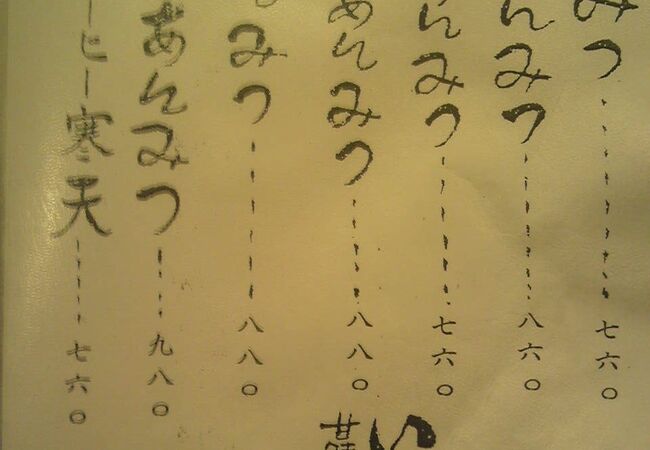 みつ……七六〇
んみつ……八六〇
んみつ……七六〇
あんみつ……八八〇
みつ……八八〇
あんみつ……九八〇
ーヒー寒天……七六〇